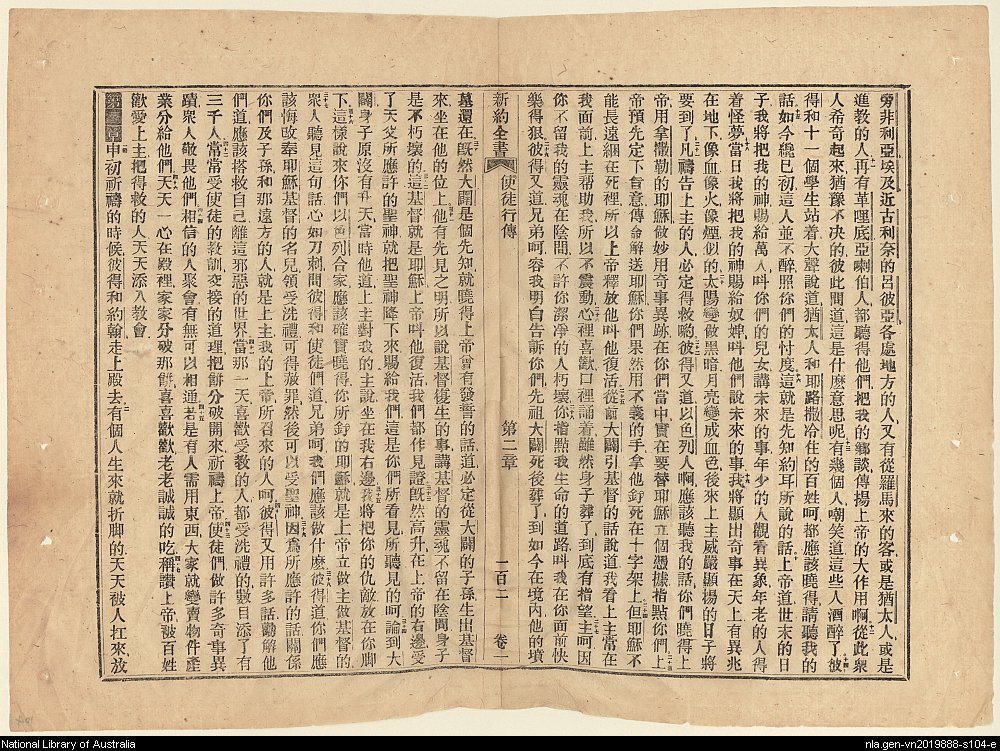 旁非利亞埃及近古利奈的呂彼亞各處地方的人又有從羅馬來的客或是猶太人或是
進教的人再有革哩底亞喇伯人都聽得他們把我的鄉談傳揚上帝的大作用啊從此衆
人希奇起來猶豫不決的彼此問道這是什麽意思呢有幾個人嘲笑道這些人酒醉了彼
得和十一個學生站着大聲說道猶太人和耶路撒冷住的百姓呵都應該曉得請聽我的
話如今纔巳初這人並不醉照你們的忖度這就是先知約耳所說的話上帝道世末的日
子我將把我的神賜給萬人叫你們的兒女講未來的事年少的人觀看異象年老的人得
着怪夢當日我將把我的神賜給奴婢叫他們說未來的事我將顯出奇事在天上有異兆
在地下像血像火像煙似的太陽變做黑暗月亮變成血色後來上主威嚴顯揚的日子將
要到了凡禱告上主的人必定得救喲彼得又道以色列人啊應該聽我的話你們曉得上
帝用拿撒勒的耶穌做妙用奇事異跡在你們當中實在要替耶穌立個憑據指點你們上
帝預先定下旨意傳命解送耶穌你們果然用不義的手拿他釘死在十字架上但耶穌不
能長遠綑在死裡所以上帝釋放他叫他復活從前大闢引基督的話說道我看上主常在
我面前上主帮助我所以不震動心裡喜歡口裡誦着雖然身子葬了到底有指望主呵因
你不留我的靈魂在陰間不許你潔淨的人朽壞你指點我生命的道路叫我在你面前快
樂得狠彼得又道兄弟呵容我明白告訴你們先祖大闢死後葬了到如今在境內他的墳
新約全書 使徒行傳 第二章 一百二 卷一
墓還在旣然大闢是個先知就曉得上帝曾有發誓的話道必定從大闢的子孫生出基督
來坐在他的位上他有先見之明所以說基督復生的事講基督的靈魂不留在陰間身子
是不朽壞的這基督就是耶穌上帝叫他復活我們都作見證旣然高升在上帝的右邊受
了天父所應許的聖神就把聖神降下來賜給我們這是你們所看見所聽見的呵論到大
闢身子原沒有升天當時他道上主對我的主說坐在我右邊我將把你的仇敵放在你脚
下這樣說來你們以色列合家應該確實曉得你所釘的耶穌就是上帝立做主做基督的
衆人聽見這句話心如刀刺問彼得和使徒們道兄弟呵我們應該做什麽彼得道你們應
該悔改奉耶穌基督的名兒領受洗禮可得赦罪然後可以受聖神因爲所應許的話關係
你們及子孫和那遠方的人就是上主我的上帝所召來的人呵彼得又用許多話勸解他
們道應該搭救自己離這邪惡的世界當那一天喜歡受敎的人都受洗禮的數目添了有
三千人常常受使徒的敎訓交接的道理把餅分破開來祈禱上帝使徒們做許多奇事異
蹟衆人敬畏他們相信的人聚會有無可以相通若是有人需用東西大家就變賣物件產
業分給他們天天一心在殿裡家家分破那餅喜喜歡歡老老誠誠的吃稱讚上帝被百姓
歡愛上主把得救的人天天添入教會
第三章申初祈禱的時候彼得和約翰走上殿去有個人生來就折脚的天天被人扛來放
National Library of Australia
nla.gen-vn2019888-s104-e